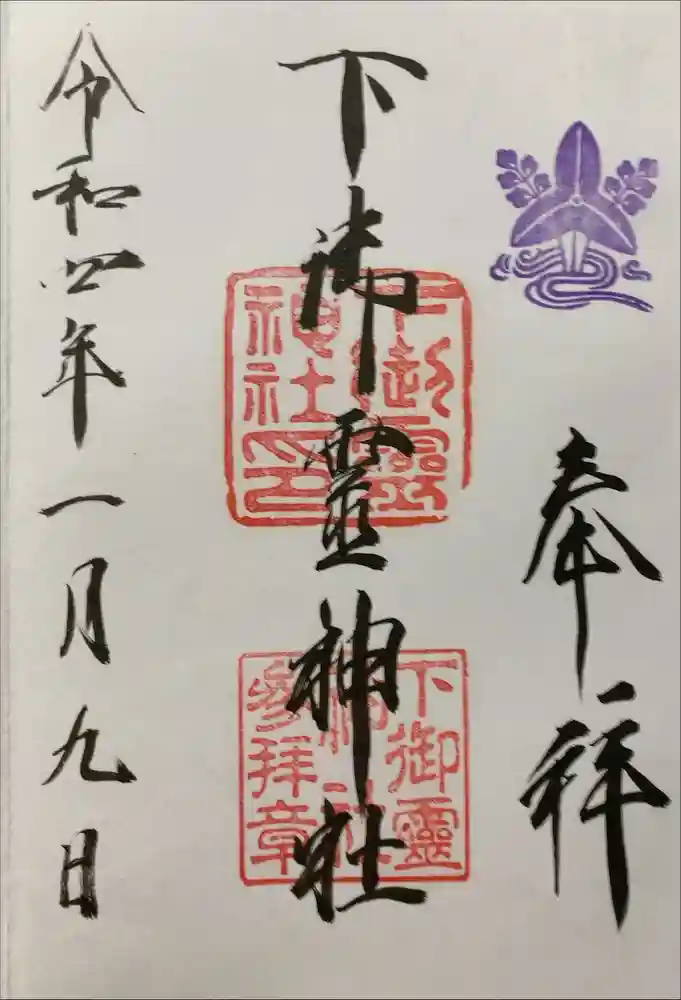 奉拝
下御靈神社
下御靈神社印
下御靈神社參拜章
令和四年一月九日